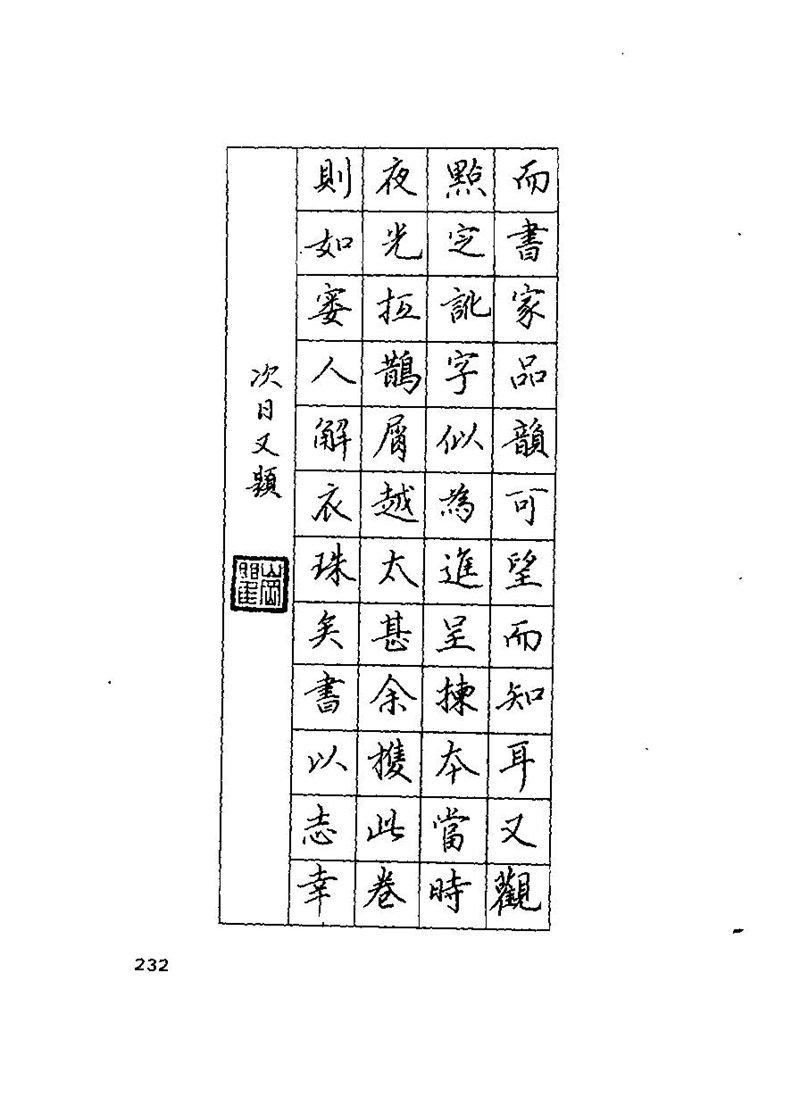 而書家品韻可望而知耳又觀
點定訛字似為進呈揀本當時
夜光抵鵲屑越太甚余攜此卷
則如窶人解衣珠矣書以志幸
次日又題
232